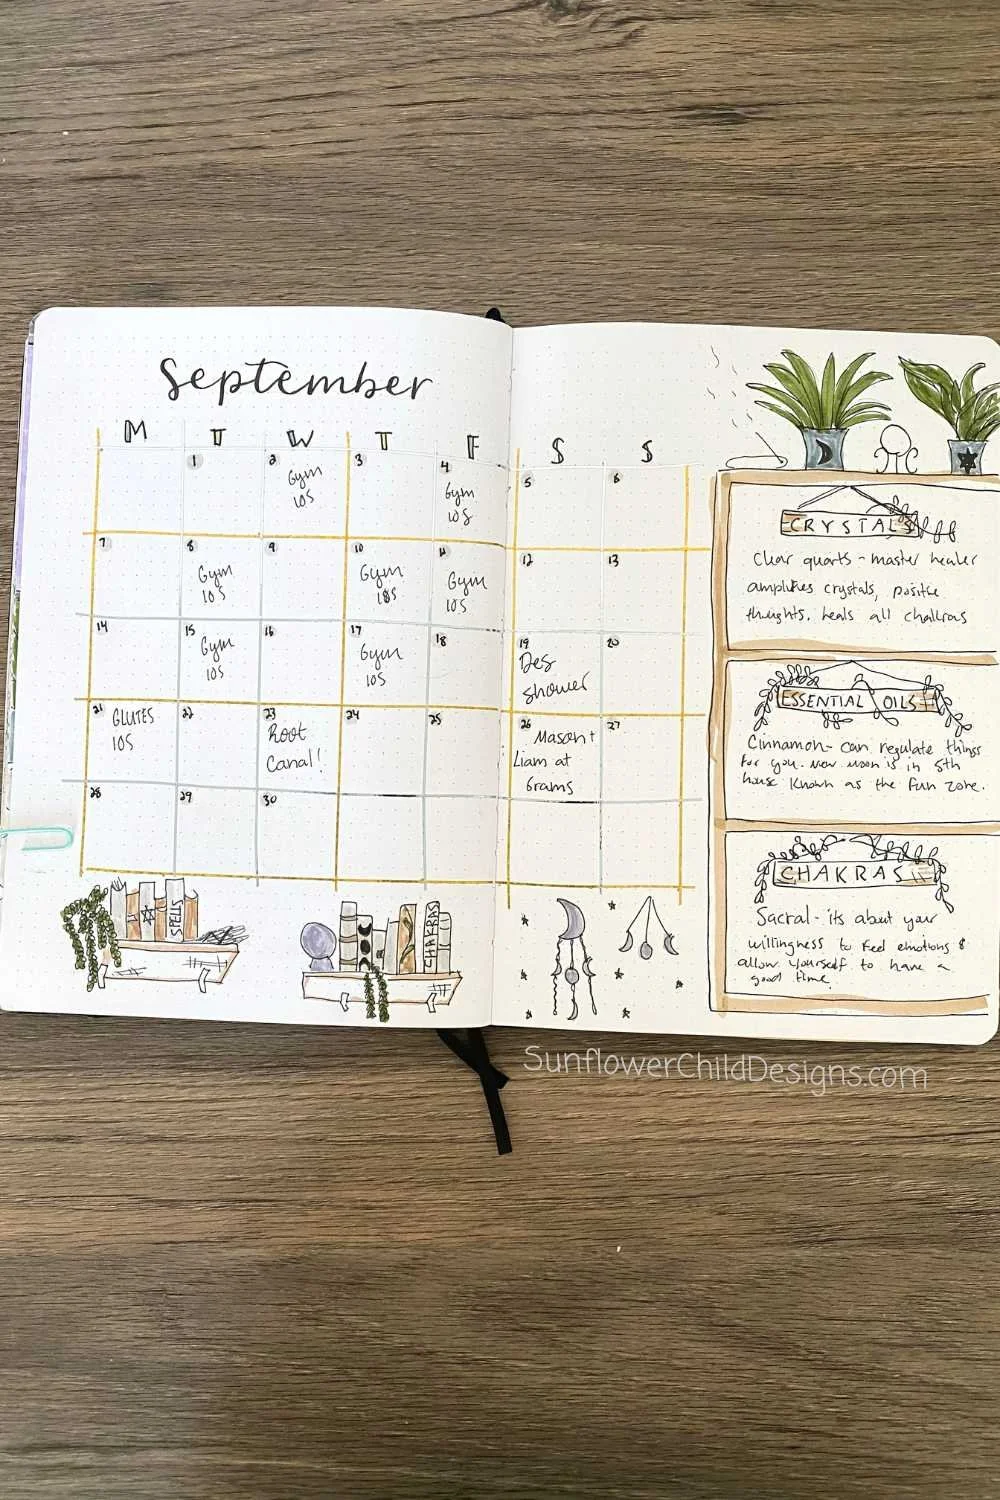 September
M T W T F S S
1
2
Gym
10S
3
4
Gym
10S
5
6
7
8
Gym
10S
9
10
Gym
10S
11
Gym
10S
12
13
14
15
Gym
10S
16
17
Gym
10S
18
19
Des
shower
20
21
GLUTES
10S
22
23
Root
Canal!
24
25
26
Mason +
Liam at
Grams
27
28
29
30
SPELLS
CHAKRAS
CRYSTALS
Clear quarts - master healer
amplifies crystals, positive
thoughts. heals all chalkras
ESSENTIAL OILS
Cinnamon - can regulate things
for you. new moon is in 5th
house known as the fun zone.
CHAKRAS
Sacral - its about your
willingness to feel emotions &
allow yourself to have a
good time.
SunflowerChildDesigns.com